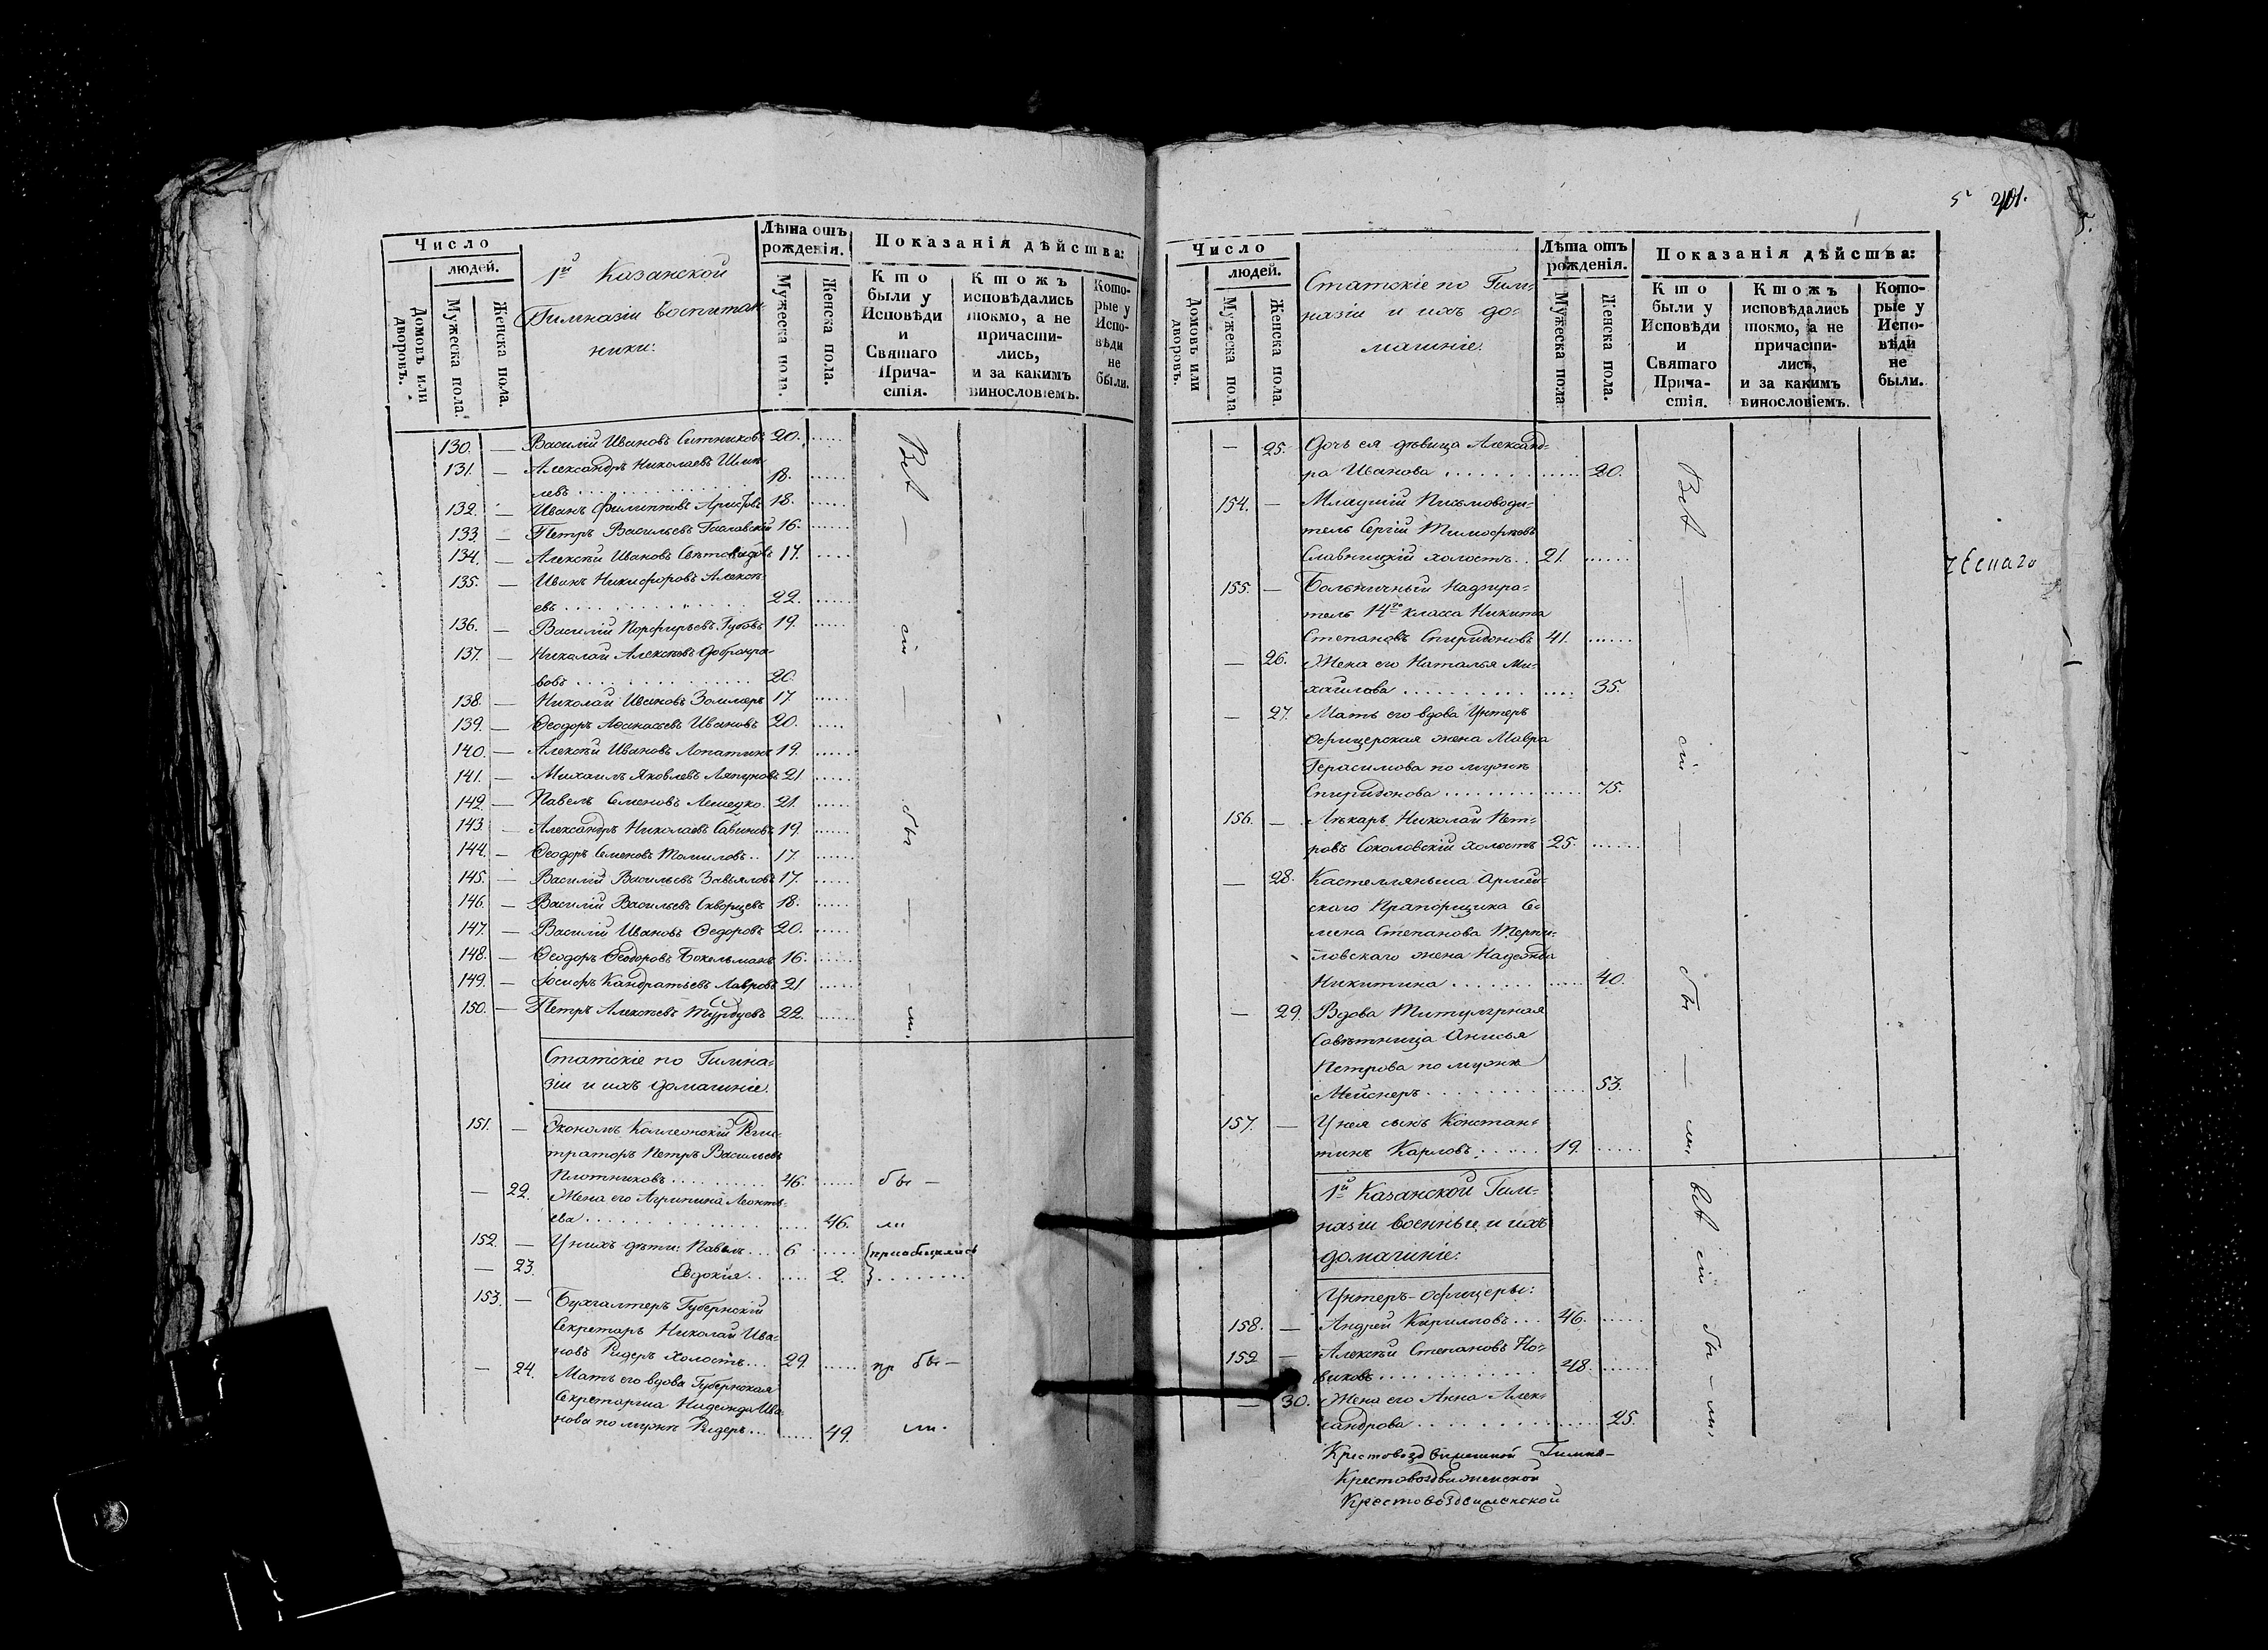 Число
людей.
Домовъ или дворовъ.
Мужеска пола.
Женска пола.
1й Казанской
Гимназіи воспитан-
ники:
Лѣта отъ
рожденія.
Мужеска пола.
Женска пола.
Показанія дѣйства:
Кто
были у
Исповѣди
и
Святаго
Прича-
стія.
Ктожъ
исповѣдались
токмо, а не
причасти-
лись,
и за какимъ
винословіемъ.
Кото-
рые у
Испо-
вѣди
не
были.
130. — Василій Ивановъ Ситниковъ 20. ......
131. — Александръ Николаевъ
левъ ............ 18. ......
132. — Иванъ Филипповъ Аристовъ 18. ......
133. — Петръ Васильевъ 16. ......
134. — Алексѣй Ивановъ Свѣтовидовъ 17. ......
135. — Иванъ Никифоровъ Алексѣ-
евъ ............ 22. ......
136. — Василій Порфирьевъ Губовъ 19. ......
137. — Николай Алексѣевъ Добронра-
вовъ ............ 20.
138. — Николай Ивановъ Зоммеръ 17 ......
139. — Ѳеодоръ Аѳанасьевъ Ивановъ 20. ......
140. — Алексѣй Ивановъ Лопатинъ 19. ......
141. — Михаилъ Яковлевъ Ляпуновъ 21 ......
142. — Павелъ Семеновъ 21. ......
143. — Александръ Николаевъ Савиновъ 19. ......
144. — Ѳеодоръ Семеновъ Томиловъ.. 17. ......
145. — Василій Васильевъ Завьяловъ 17. ......
146. — Василій Васильевъ Скворцевъ 18. ......
147. — Василій Ивановъ Ѳедоровъ 20. ......
148. — Ѳеодоръ Ѳеодоровъ Бокельманъ 16. ......
149. — Іосифъ Кандратьевъ Лавровъ 21. ......
150. — Петръ Алексѣевъ 22. ......
Всѣ — сіи — бы — — ли.
Статскіе по Гимна-
зіи и ихъ домашніе.
151. — Экономъ Коллежскій Реги-
страторъ Петръ Васильевъ
Плотниковъ .......... 46. ...... бы —
— 22. Жена его Агрипина Леонть-
ева ............ 46. ли
152. — У нихъ дѣти: Павелъ... 6 ...... {приобщались
— 23. Евдокія.. ..... 2. }........
153. — Бухгалтеръ Губернскій
Секретарь Николай Ива-
новъ Ридеръ холостъ... 29. ...... пр бы —
— 24. Мать его вдова Губернская
Секретарша Надежда Ива-
нова по мужѣ Ридеръ... ...... 49. ли.
5 201.
Число
людей.
Домовъ или дворовъ.
Мужеска пола.
Женска пола.
Статскіе по Гим-
назіи и ихъ до-
машніе.
Лѣта отъ
рожденія.
Мужеска пола
Женска пола.
Показанія дѣйства:
Кто
были у
Исповѣди
и
Святаго
Прича-
стія.
Ктожъ
исповѣдались
токмо, а не
причасти-
лись,
и за какимъ
винословіемъ.
Кото-
рые у
Испо-
вѣди
не
были.
— 25. Дочь ея дѣвица Александ-
ра Иванова ....... ...... 20.
154. — Младшій Письмоводи-
тель Сергій Тимофѣевъ
Славницкій холостъ.. 21. ......
155. — Больничный Надзира-
тель 14го класса Никита
Степановъ Спиридоновъ 41. ......
— 26. Жена его Наталья Ми-
хайлова .......... ..... 35.
— 27. Мать его вдова Унтеръ
Офицерская жена Мавра
Герасимова по мужѣ
Спиридонова ......... ...... 75.
156. — Лѣкарь Николай Пет-
ровъ Соколовскій холостъ 25. ......
— 28. Кастелянъша Армей-
скаго Прапорщика Се-
мена Степанова
ловскаго жена Надежда
Никитина ....... ...... 40.
— 29. Вдова Титулярная
Совѣтница Анисья
Петрова по мужѣ
Мейснеръ ......... ...... 53.
157. — У нея сынъ Констан-
тинъ Карловъ ...... 19. ......
Всѣ — сіи — бы — ли
чеснаго
1й Казанской Гим-
назіи военные и ихъ
домашніе:
Унтеръ-офицеры:
158. — Андрей Кириловъ... 46. ......
159 — Алексѣй Степановъ Но-
виковъ ............ 48. ......
— 30. Жена его Анна Алек-
сандрова ......... ...... 25.
всѣ сіи бы — ли
Крестовоздвиженской Гимна-
Крестовоздвиженской
Крестовоздвиженской